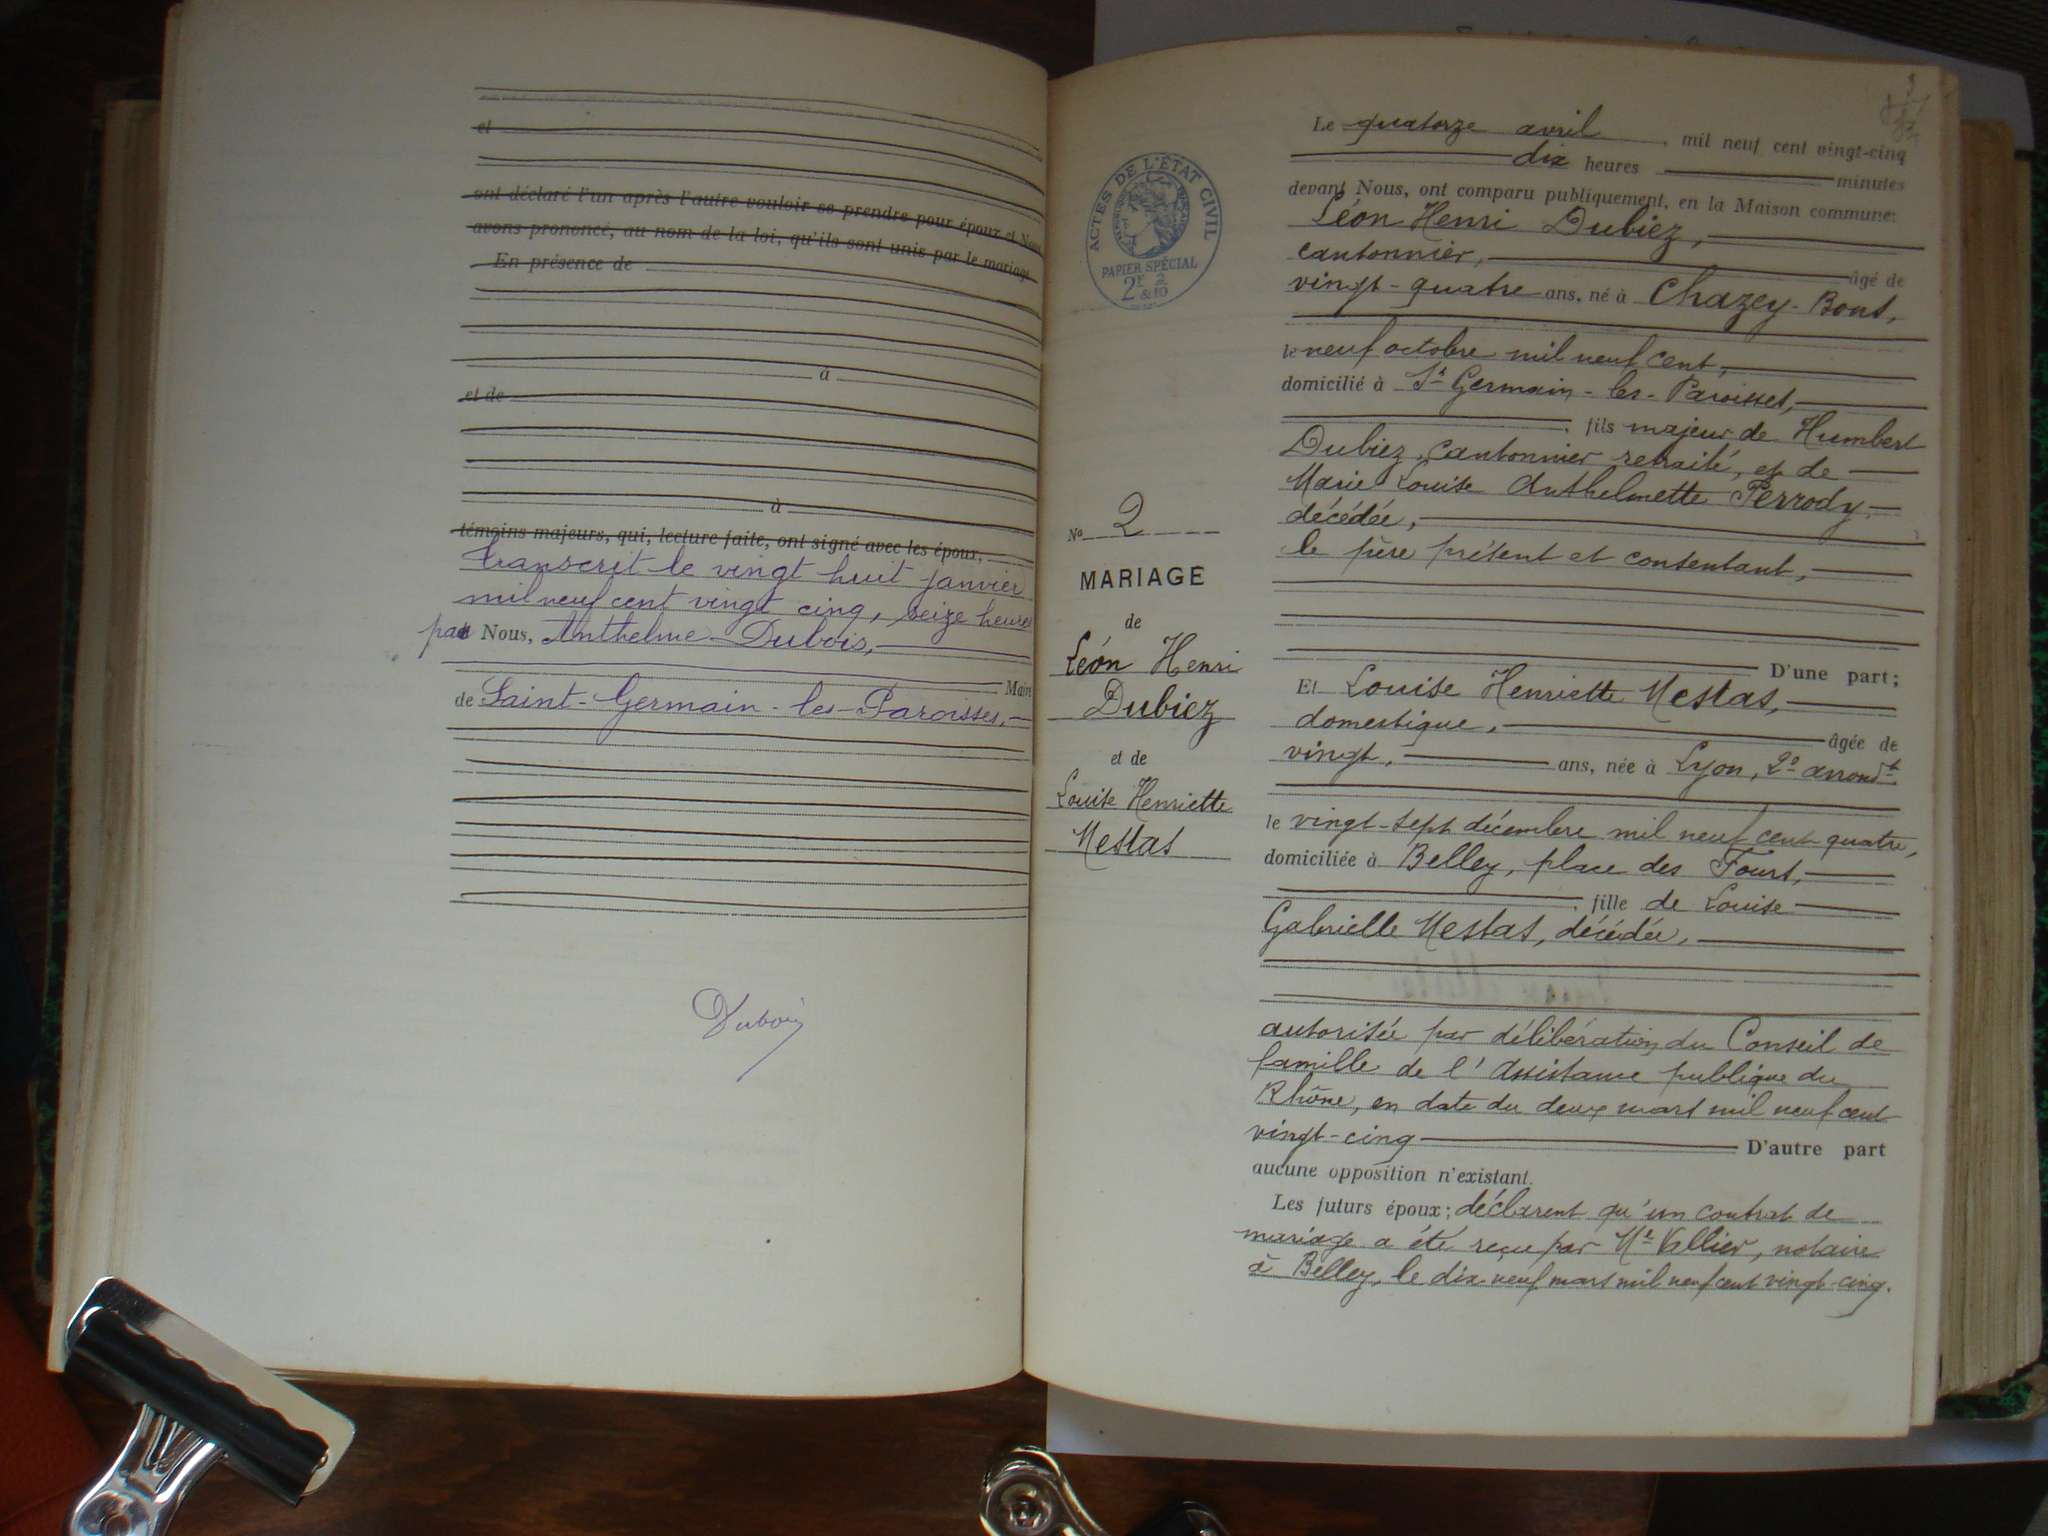 et
ont déclaré l'un après l'autre vouloir se prendre pour époux et Nous
avons prononcé, au nom de la loi, qu'ils sont unis par le mariage.
En présence de
à
et de
à
témoins majeurs, qui, lecture faite, ont signé avec les époux,
transcrit le vingt huit janvier
mil neuf cent vingt cinq, seize heures
par Nous, Anthelme Dubois,
Maire
de Saint-Germain-les-Paroisses,
Dubois
ACTES DE L'ÉTAT CIVIL
PAPIER SPÉCIAL
2F 2
&10
No 2
MARIAGE
de
Léon Henri
Dubiez
et de
Louise Henriette
Mestas
Le quatorze avril, mil neuf cent vingt-cinq
dix heures minutes
devant Nous, ont comparu publiquement, en la Maison commune:
Léon Henri Dubiez,
cantonnier, âgé de
vingt-quatre ans, né à Chazey-Bons,
le neuf octobre mil neuf cent,
domicilié à St Germain-les-Paroisses,
, fils majeur de Humbert
Dubiez, cantonnier retraité, et de
Marie Louise Anthelmette Ferrody,
décédée,
le père présent et consentant,
D'une part;
Et Louise Henriette Mestas,
domestique, âgée de
vingt, ans, née à Lyon, 2e arrondt
le vingt-sept décembre mil neuf cent quatre,
domiciliée à Belley, place des Fours,
, fille de Louise
Gabrielle Mestas, décédée,
autorisée par délibération du Conseil de
famille de l'Assistance publique du
Rhône, en date du deux mars mil neuf cent
vingt-cinq D'autre part
aucune opposition n'existant.
Les futurs époux; déclarent qu'un contrat de
mariage a été reçu par Me Vallier, notaire
à Belley, le dix-neuf mars mil neuf cent vingt-cinq.